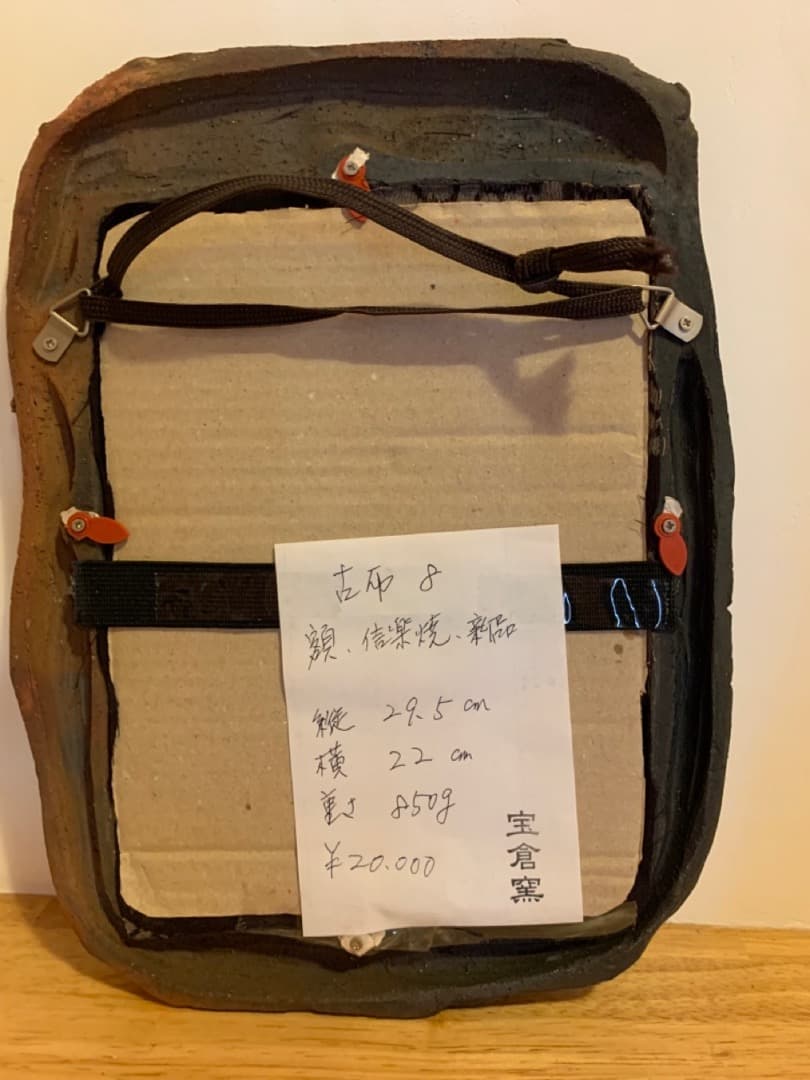 古布 8
額、信楽焼、新品
縦 29.5 cm
横 22 cm
重さ 850g
¥20.000
宝倉窯